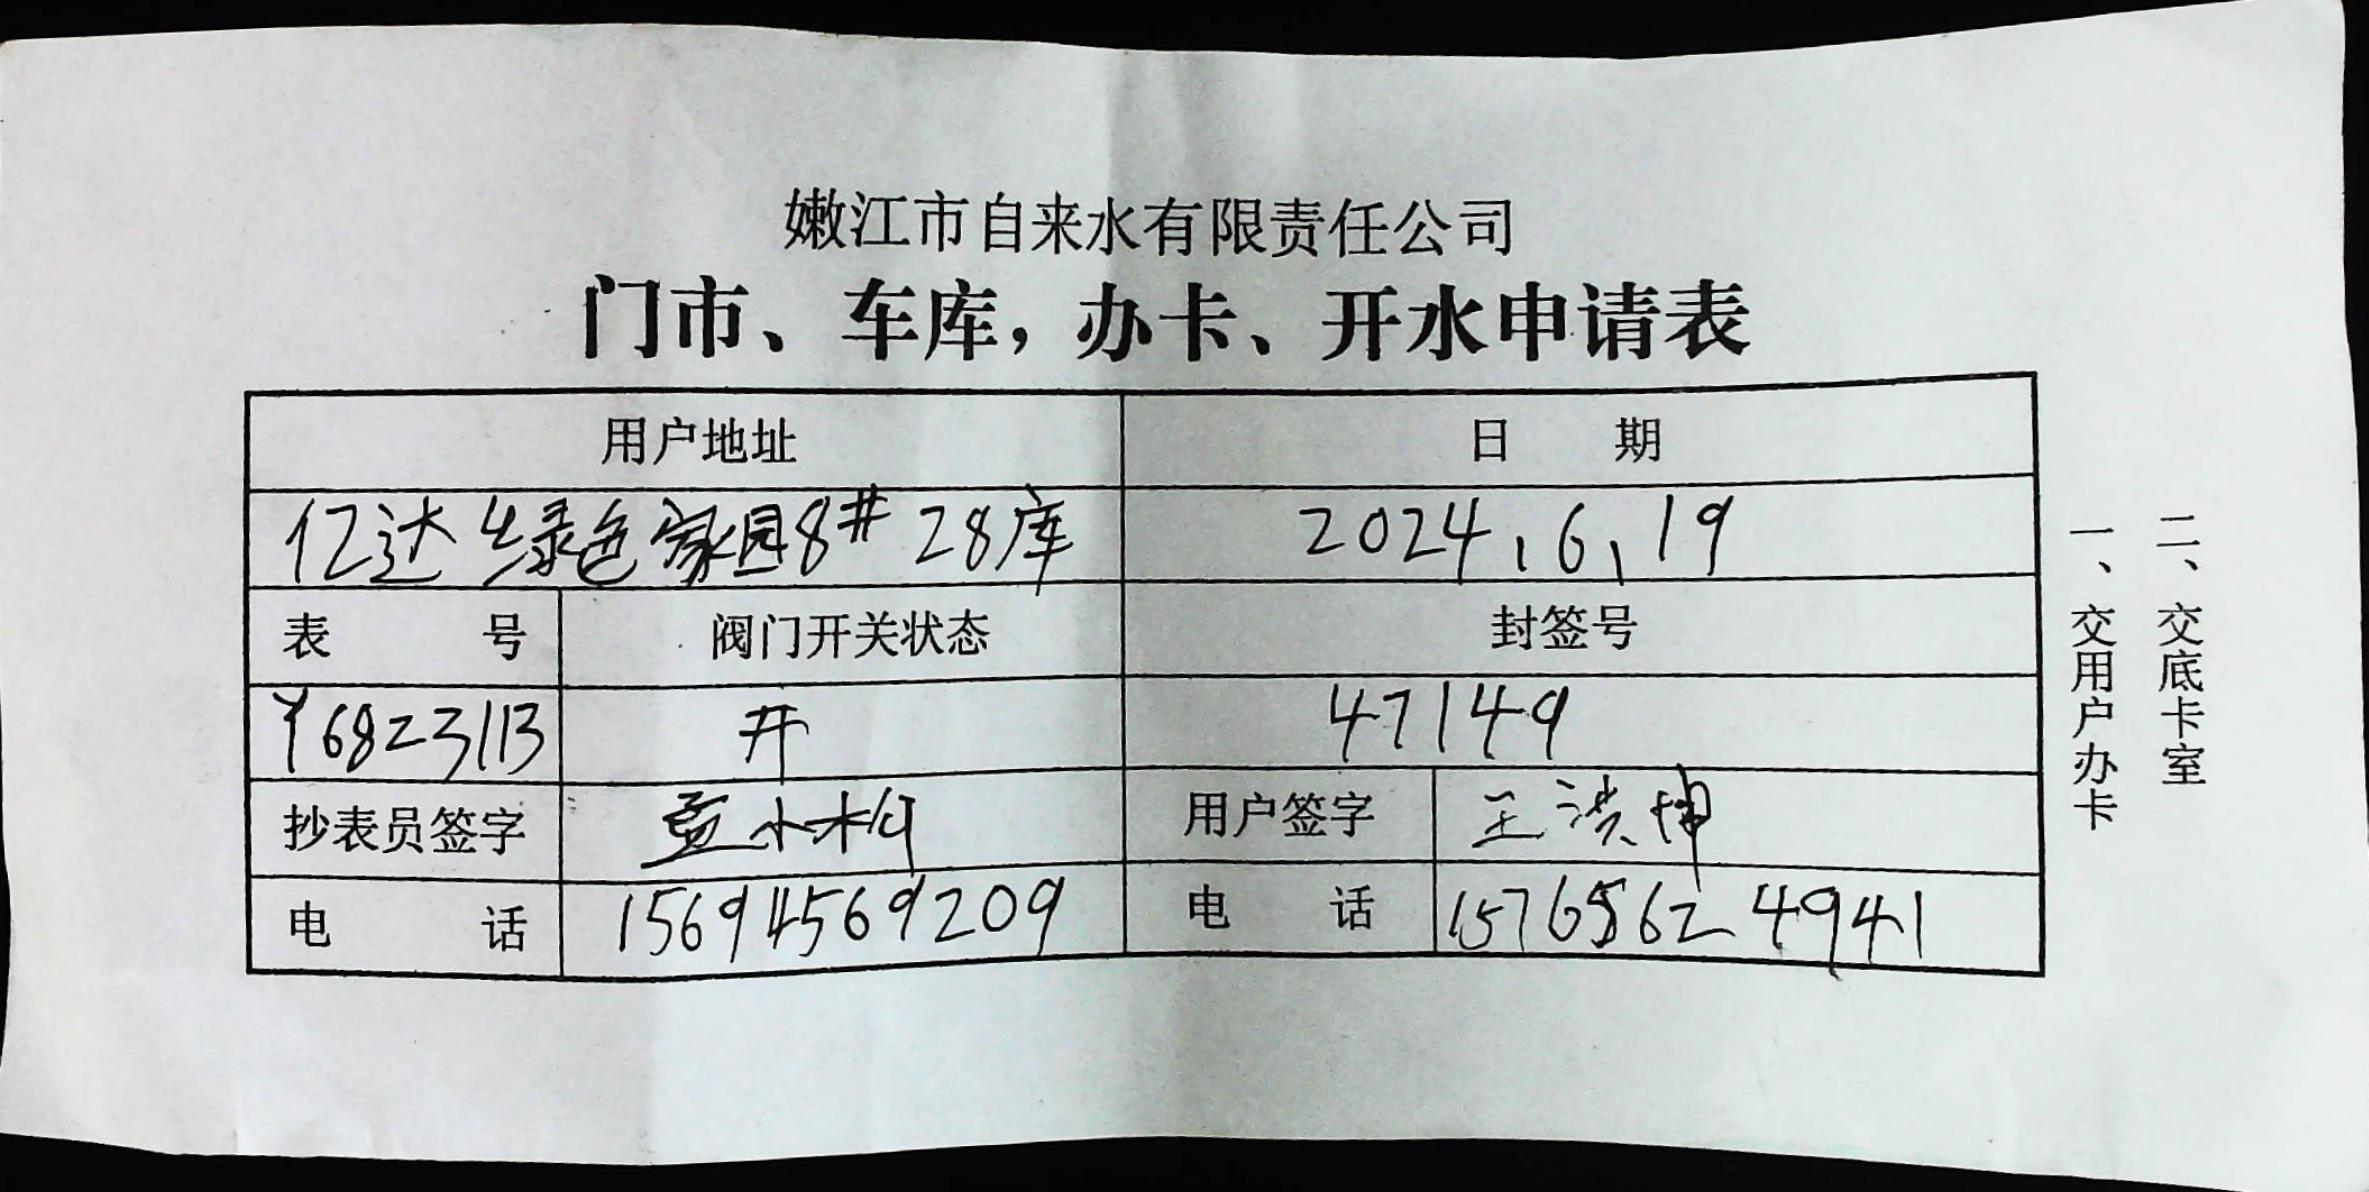 嫩江市自来水有限责任公司
门市、车库，办卡、开水申请表
用户地址 日期
亿达绿色家园8# 28库 2024、6、19
表号 阀门开关状态 封签号
Y6823113 开 47149
抄表员签字 孟小松 用户签字 王洪坤
电话 15694569209 电话 15765624941
一、交用户办卡
二、交底卡室